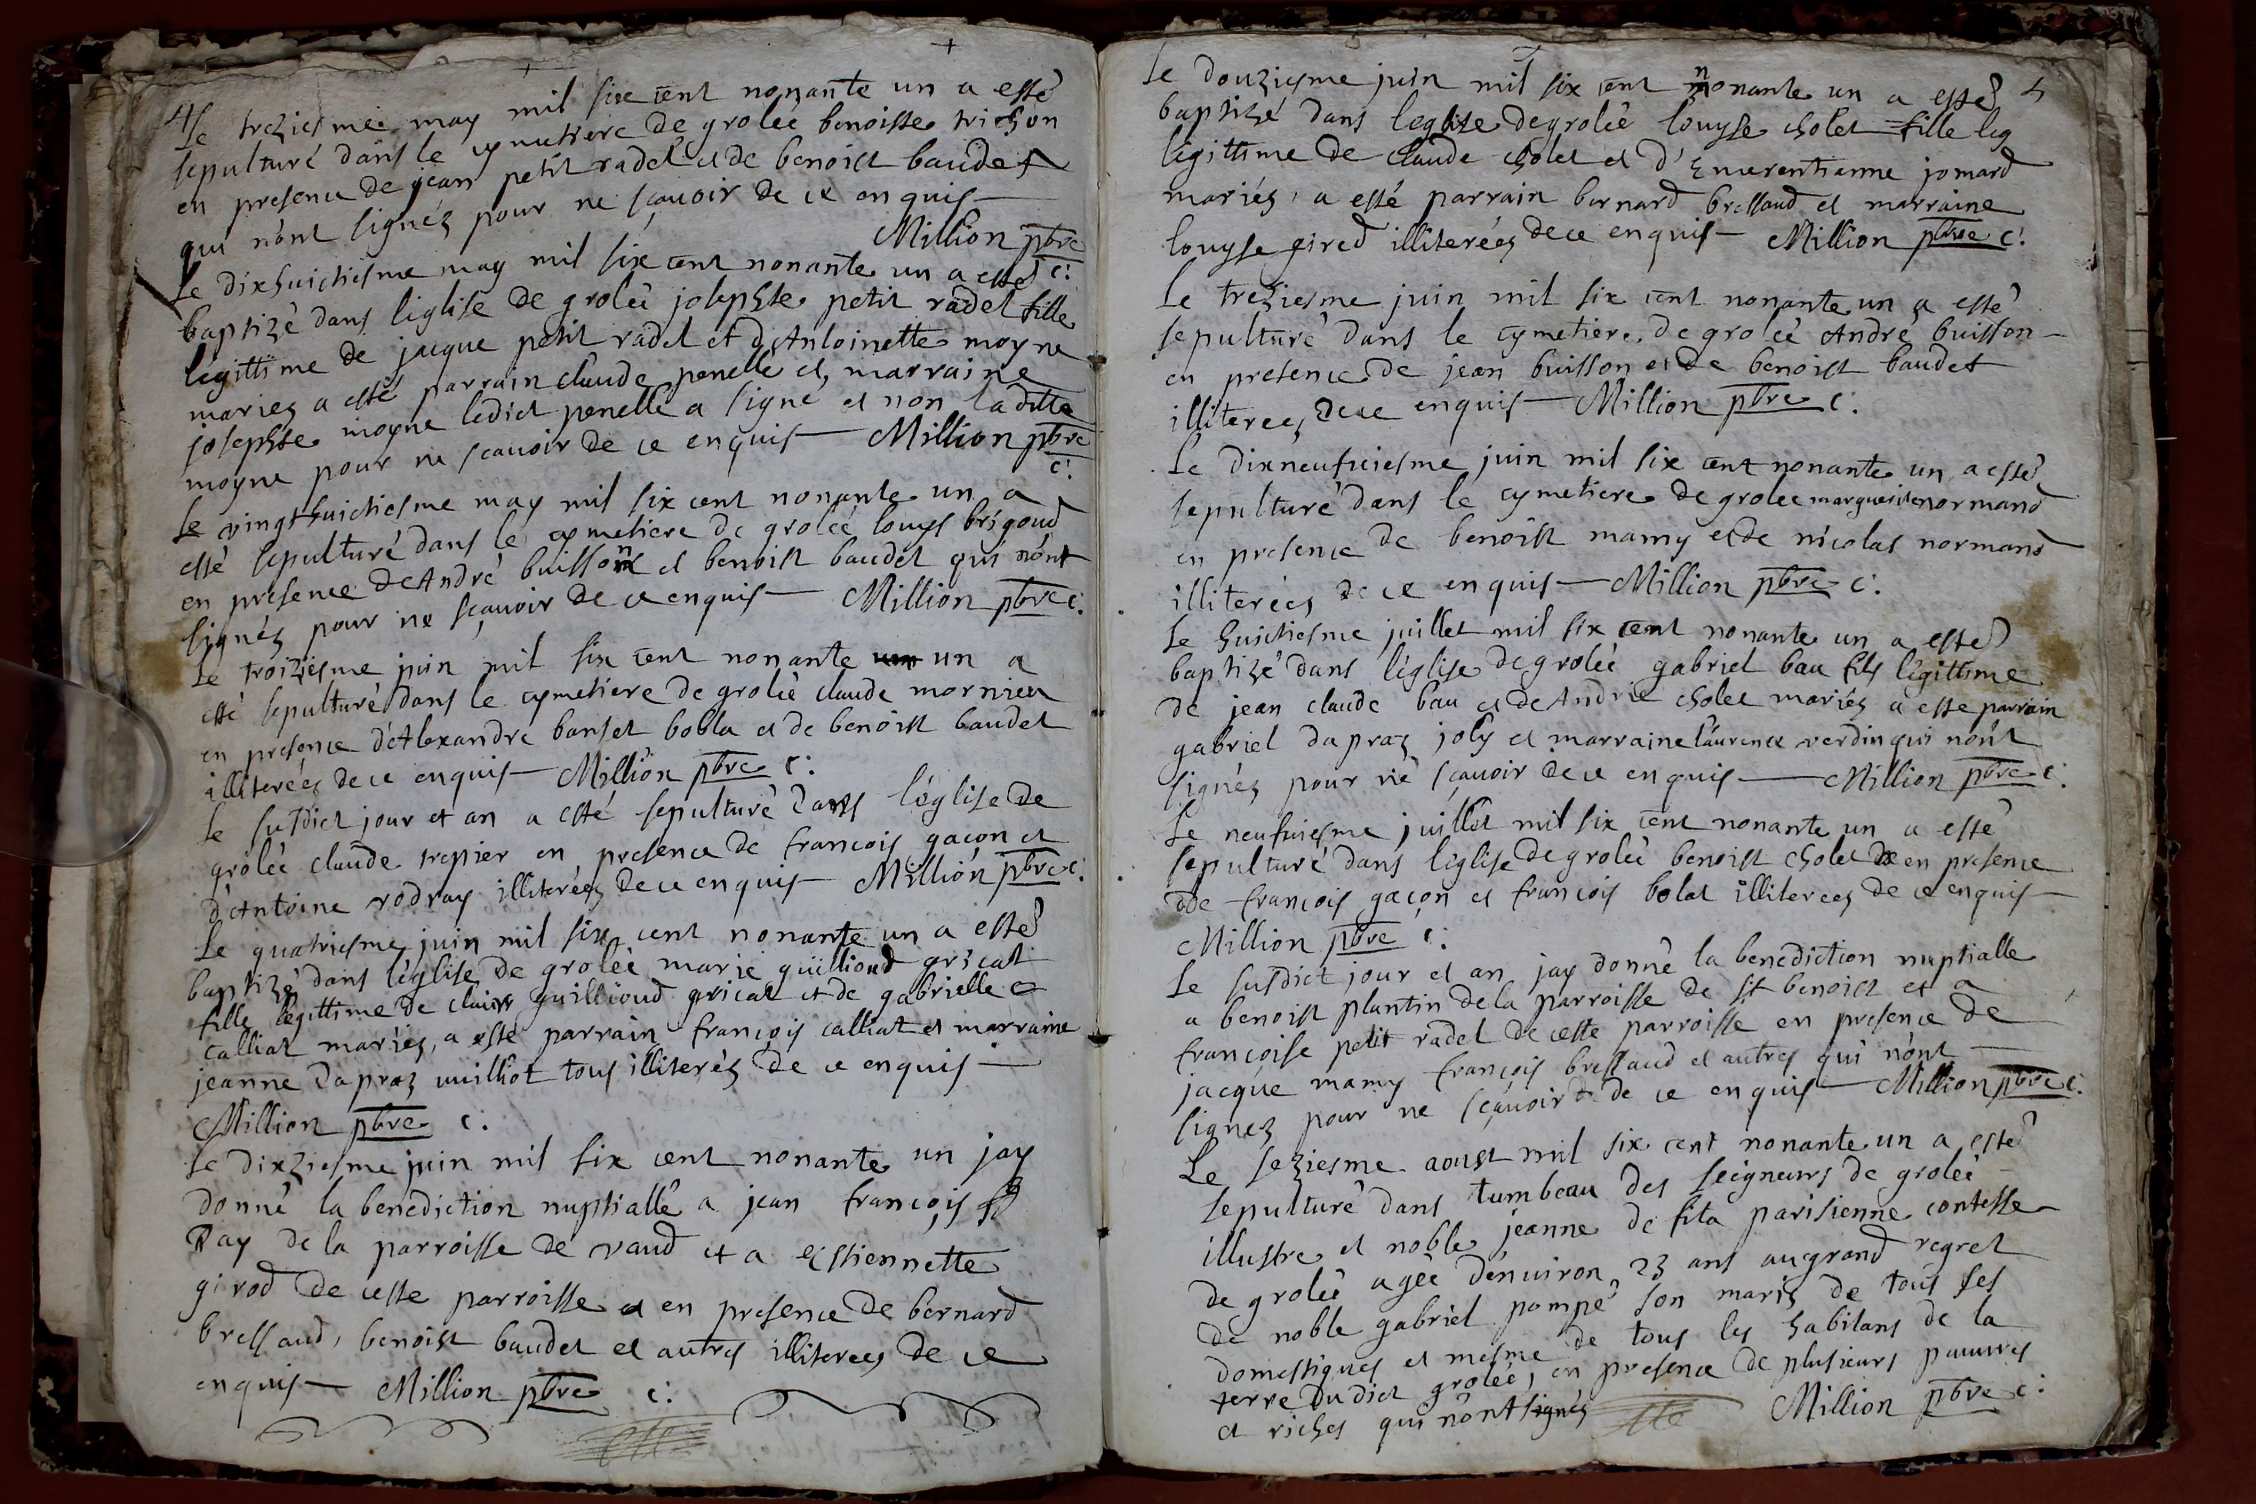 4
Le treziesme may mil six cent nonante un a esté
sepulturé dans le cymetiere de groleé benoisse trichon
en presence de jean petit radet et de benoict baudet
qui n'ont signéz pour ne sçauoir de ce enquis
Million pbre
c:
Le dixhuictiesme may mil six cent nonante un a esté
baptizé dans l'eglise de groleé josephte petit radet fille
legittime de jacque petit radet et d'Antoinette moyne
mariez a esté parrain claude penelle et marraine
josephte moyne ledict penelle a signé et non la ditte
moyne pour ne sçauoir de ce enquis Million pbre
c:
Le vingthuictiesme may mil six cent nonante un a
esté sepulturé dans le cymetiere de groleé louys brigoud
en presence de André buisson et benoist baudet qui n'ont
signéz pour ne sçauoir de ce enquis Million pbre c:
Le troiziesme juin mil six cent nonante un a
esté sepulturé dans le cymetiere de groleé claude mornieu
en presence d'Alexandre banset bobla et de benoist baudet
illitereéz de ce enquis Million pbre c:
Le susdict jour et an a esté sepulturé dans l'église de
groleé claude trepier en presence de francois gacon et
d'Antoine rodray illitereéz de ce enquis Million pbre c:
Le quatriesme juin mil six cent nonante un a esté
baptizé dans l'église de groleé marie guillioud gricat
fille legittime de guillioud gricat et de gabrielle
calliat mariéz, a esté parrain françois calliat et marraine
jeanne dapraz uuilliot tous illiteréz de ce enquis
Million pbre c:
Le dixziesme juin mil six cent nonante un jay
donné la benediction nuptialle a jean françois
Ray de la parroisse de vaud et a estiennette
girod de ceste parroisse en presence de bernard
bressaud, benoist baudet et autres illitereez de ce
enquis Million pbre c:
5
Le douziesme juin mil six cent nonante un a esté
baptizé dans l'eglise de groleé louyse cholet fille leg
légittime de claude cholet et d'Enuerentianne jomard
mariéz, a esté parrain bernard bressaud et marraine
louyse gired illitereéz de ce enquis Million pbre c:
Le treziesme juin mil six cent nonante un a esté
sepulturé dans le cymetiere de groleé André buisson
en presence de jean buisson et de benoist baudet
illitereez de ce enquis Million pbre c:
Le dixneufuiesme juin mil six cent nonante un a esté
sepulturé dans le cymetiere de groleé marguerite normand
en presence de benoist mamy et de nicolas normand
illitereéz de ce enquis Million pbre c:
Le huictiesme juillet mil six cent nonante un a esté
baptizé dans l'église de groleé gabriel bau fils légittime
de jean claude bau et de Andrie cholet mariéz a esté parrain
gabriel dapraz joly et marraine laurence verdin qui n'ont
signéz pour ne sçauoir de ce enquis Million pbre c:
Le neufuiesme juillet mil six cent nonante un a esté
sepulturé dans l'église de groleé benoist cholet en presence
de françois gaçon et francois bolat illitereez de ce enquis
Million pbre c:
Le susdict jour et an jay donné la benediction nuptialle
a benoist plantin de la parroisse de st benoict et a
françoise petit radet de ceste parroisse en presence de
jacque mamy françois bressaud et autres qui n'ont
signez pour ne sçauoir de ce enquis Million pbre c:
Le seziesme aoust mil six cent nonante un a esté
sepulturé dans tumbeau des seigneurs de groleé
illustre et noble jeanne de fita parisienne contesse
de groleé ageé d'enuiron 23 ans au grand regret
de noble gabriel pompé son mariz de tous ses
domestiques et mesme de tous les habitans de la
terre du dict groleé, en presence de plusieurs pauures
et riches qui n'ont signés Million pbre c: